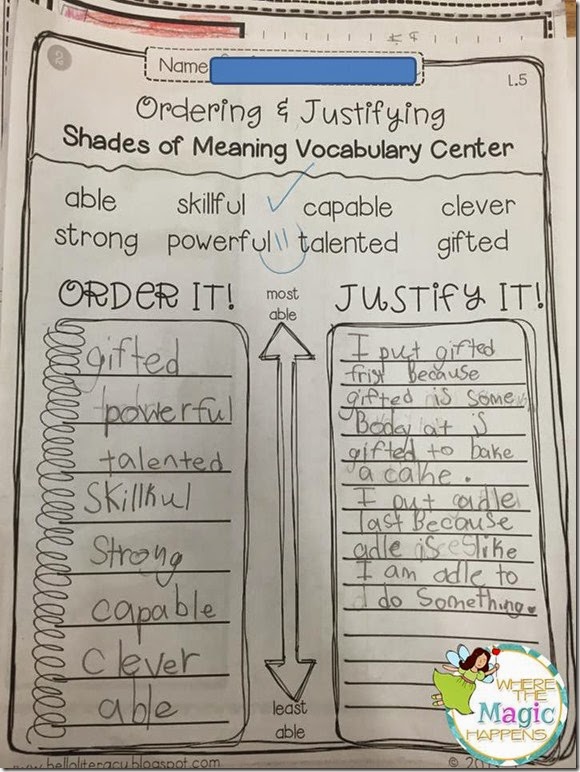 2
Name
L.5
Ordering & Justifying
Shades of Meaning Vocabulary Center
able skillful capable clever
strong powerful talented gifted
ORDER IT!
most
able
JUSTIFY IT!
gifted
powerful
talented
Skillful
Strong
capable
Clever
able
least
able
I put gifted
frist because
gifted is some
Body at is
gifted to bake
a cake.
I put adle
last Because
adle is like
I am adle to
do Something.
WHERE
THE
Magic
HAPPENS
www.helloliteracy.blogspot.com
©